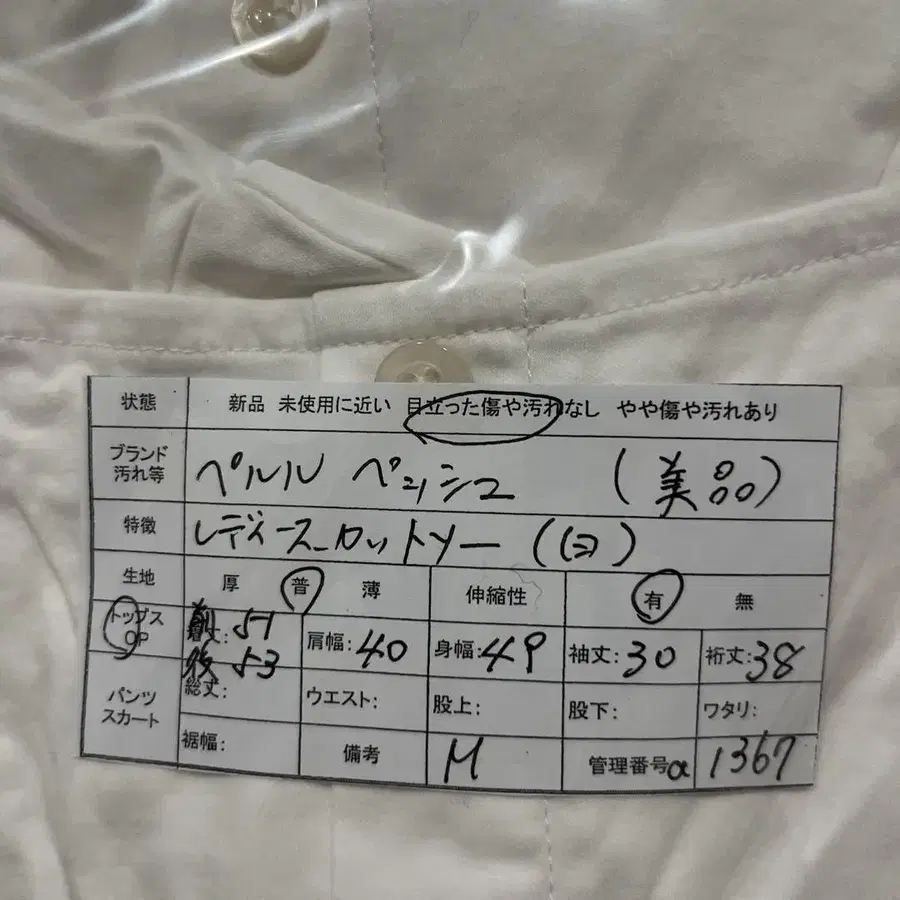 状態 新品 未使用に近い 目立った傷や汚れなし やや傷や汚れあり
ブランド 汚れ等 ペルル ペッシュ (美品)
特徴 レディース カットソー (白)
生地 厚 普 薄 伸縮性 有 無
トップス OP 前丈: 51 後 53 肩幅: 40 身幅: 49 袖丈: 30 裄丈: 38
パンツ スカート 総丈: ウエスト: 股上: 股下: ワタリ:
裾幅: 備考 M 管理番号α 1367